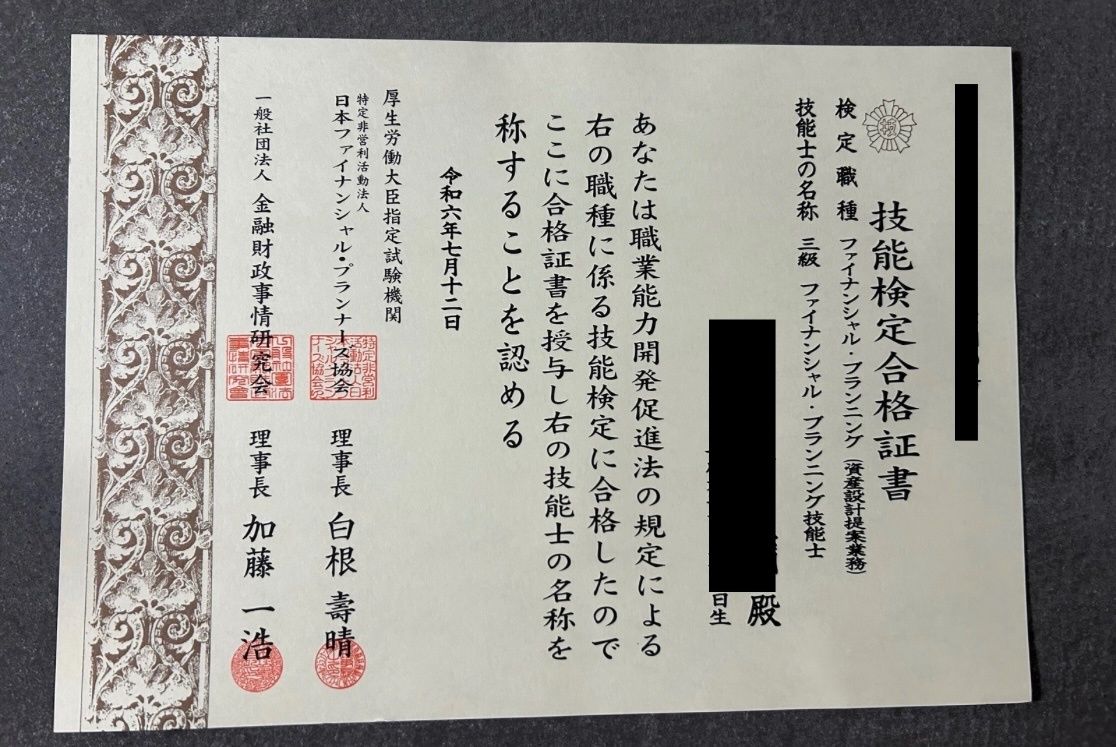 技能検定合格証書
検定職種 ファイナンシャル・プランニング(資産設計提案業務)
技能士の名称 三級 ファイナンシャル・プランニング技能士
殿
日生
あなたは職業能力開発促進法の規定による
右の職種に係る技能検定に合格したので
ここに合格証書を授与し右の技能士の名称を
称することを認める
令和六年七月十二日
厚生労働大臣指定試験機関
特定非営利活動法人
日本ファイナンシャル・プランナーズ協会 理事長 白根 壽晴
一般社団法人 金融財政事情研究会 理事長 加藤 一浩